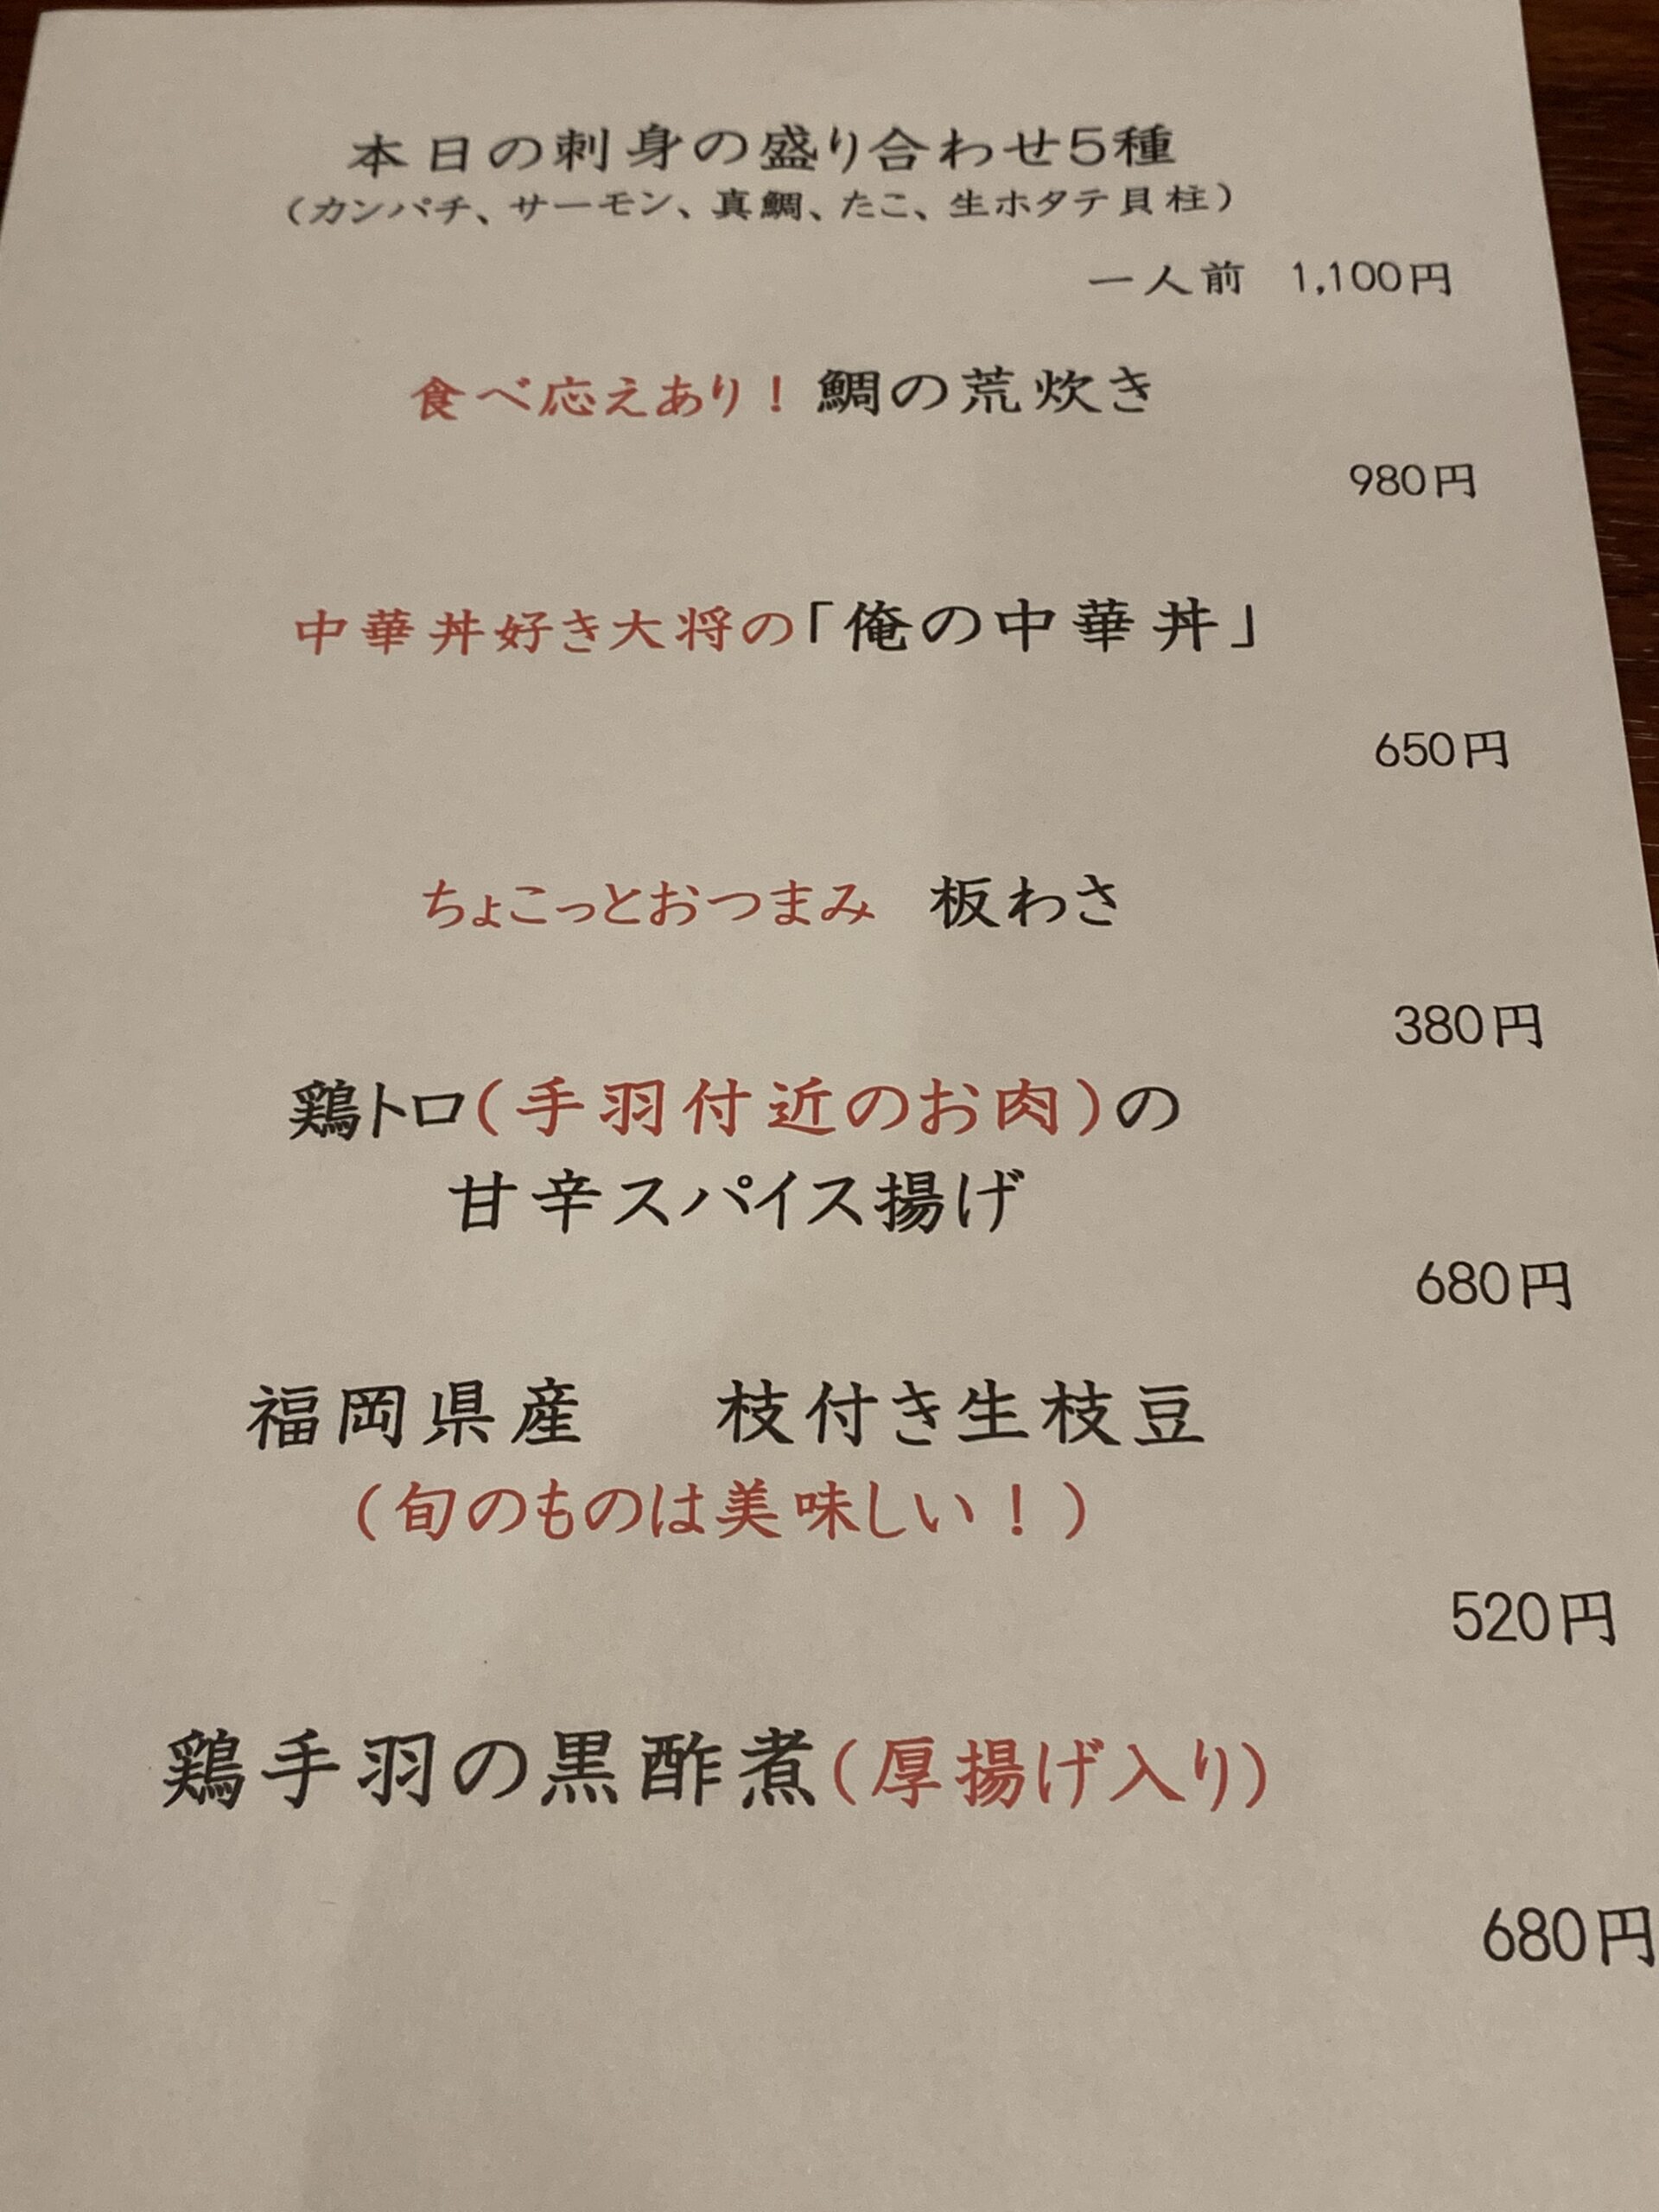 本日の刺身の盛り合わせ5種
（カンパチ、サーモン、真鯛、たこ、生ホタテ貝柱）
一人前　1,100円
食べ応えあり！鯛の荒炊き
980円
中華丼好き大将の「俺の中華丼」
650円
ちょこっとおつまみ　板わさ
380円
鶏トロ（手羽付近のお肉）の
甘辛スパイス揚げ
680円
福岡県産　枝付き生枝豆
（旬のものは美味しい！）
520円
鶏手羽の黒酢煮（厚揚げ入り）
680円